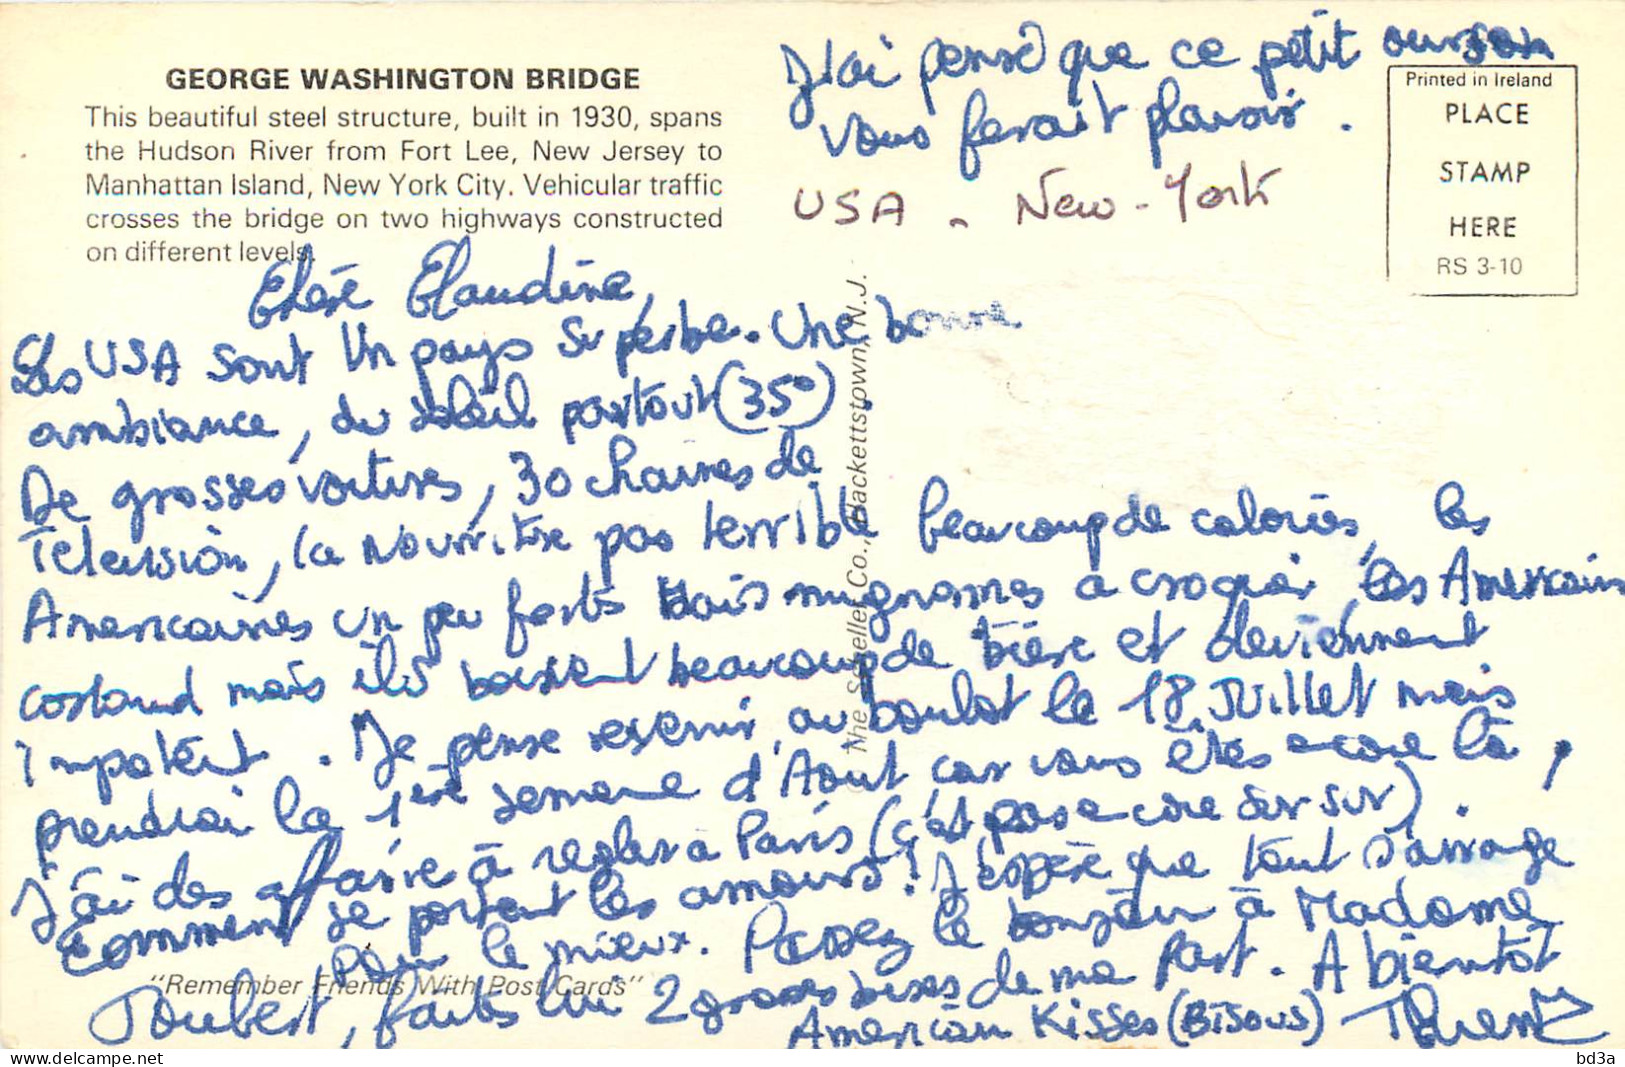 GEORGE WASHINGTON BRIDGE
This beautiful steel structure, built in 1930, spans
the Hudson River from Fort Lee, New Jersey to
Manhattan Island, New York City. Vehicular traffic
crosses the bridge on two highways constructed
on different levels.
J'ai pensé que ce petit ourson
vous ferait plaisir.
USA - New-York
Printed in Ireland
PLACE
STAMP
HERE
RS 3-10
Chère Claudine,
Les USA sont Un pays Superbe. Une bonne
ambiance, du soleil partout (35°).
De grosses voitures, 30 chaines de
Television, la nourriture pas terrible beaucoup de calories, les
Americaines un peu fortes mais mignonnes a croquer, les Americains
costaud mais ils boivent beaucoup de bière et deviennent
impotent. Je pense revenir au boulot le 18 JUILLET mais
prendrai la 1ère semaine d'Aout car vous êtes encore là,
J'ai des affaire à regler a Paris (c'est pas encore sur sur).
Comment se portent les amours! J'espère que tout s'arrange
pour le mieux. Passez le bonjour à Madame
Joubert, faits lui 2 grosses bises de ma part. A bientot
American Kisses (BISOUS)
"Remember Friends With Post Cards"
The Scheller Co., Hackettstown, N.J.
bd3a